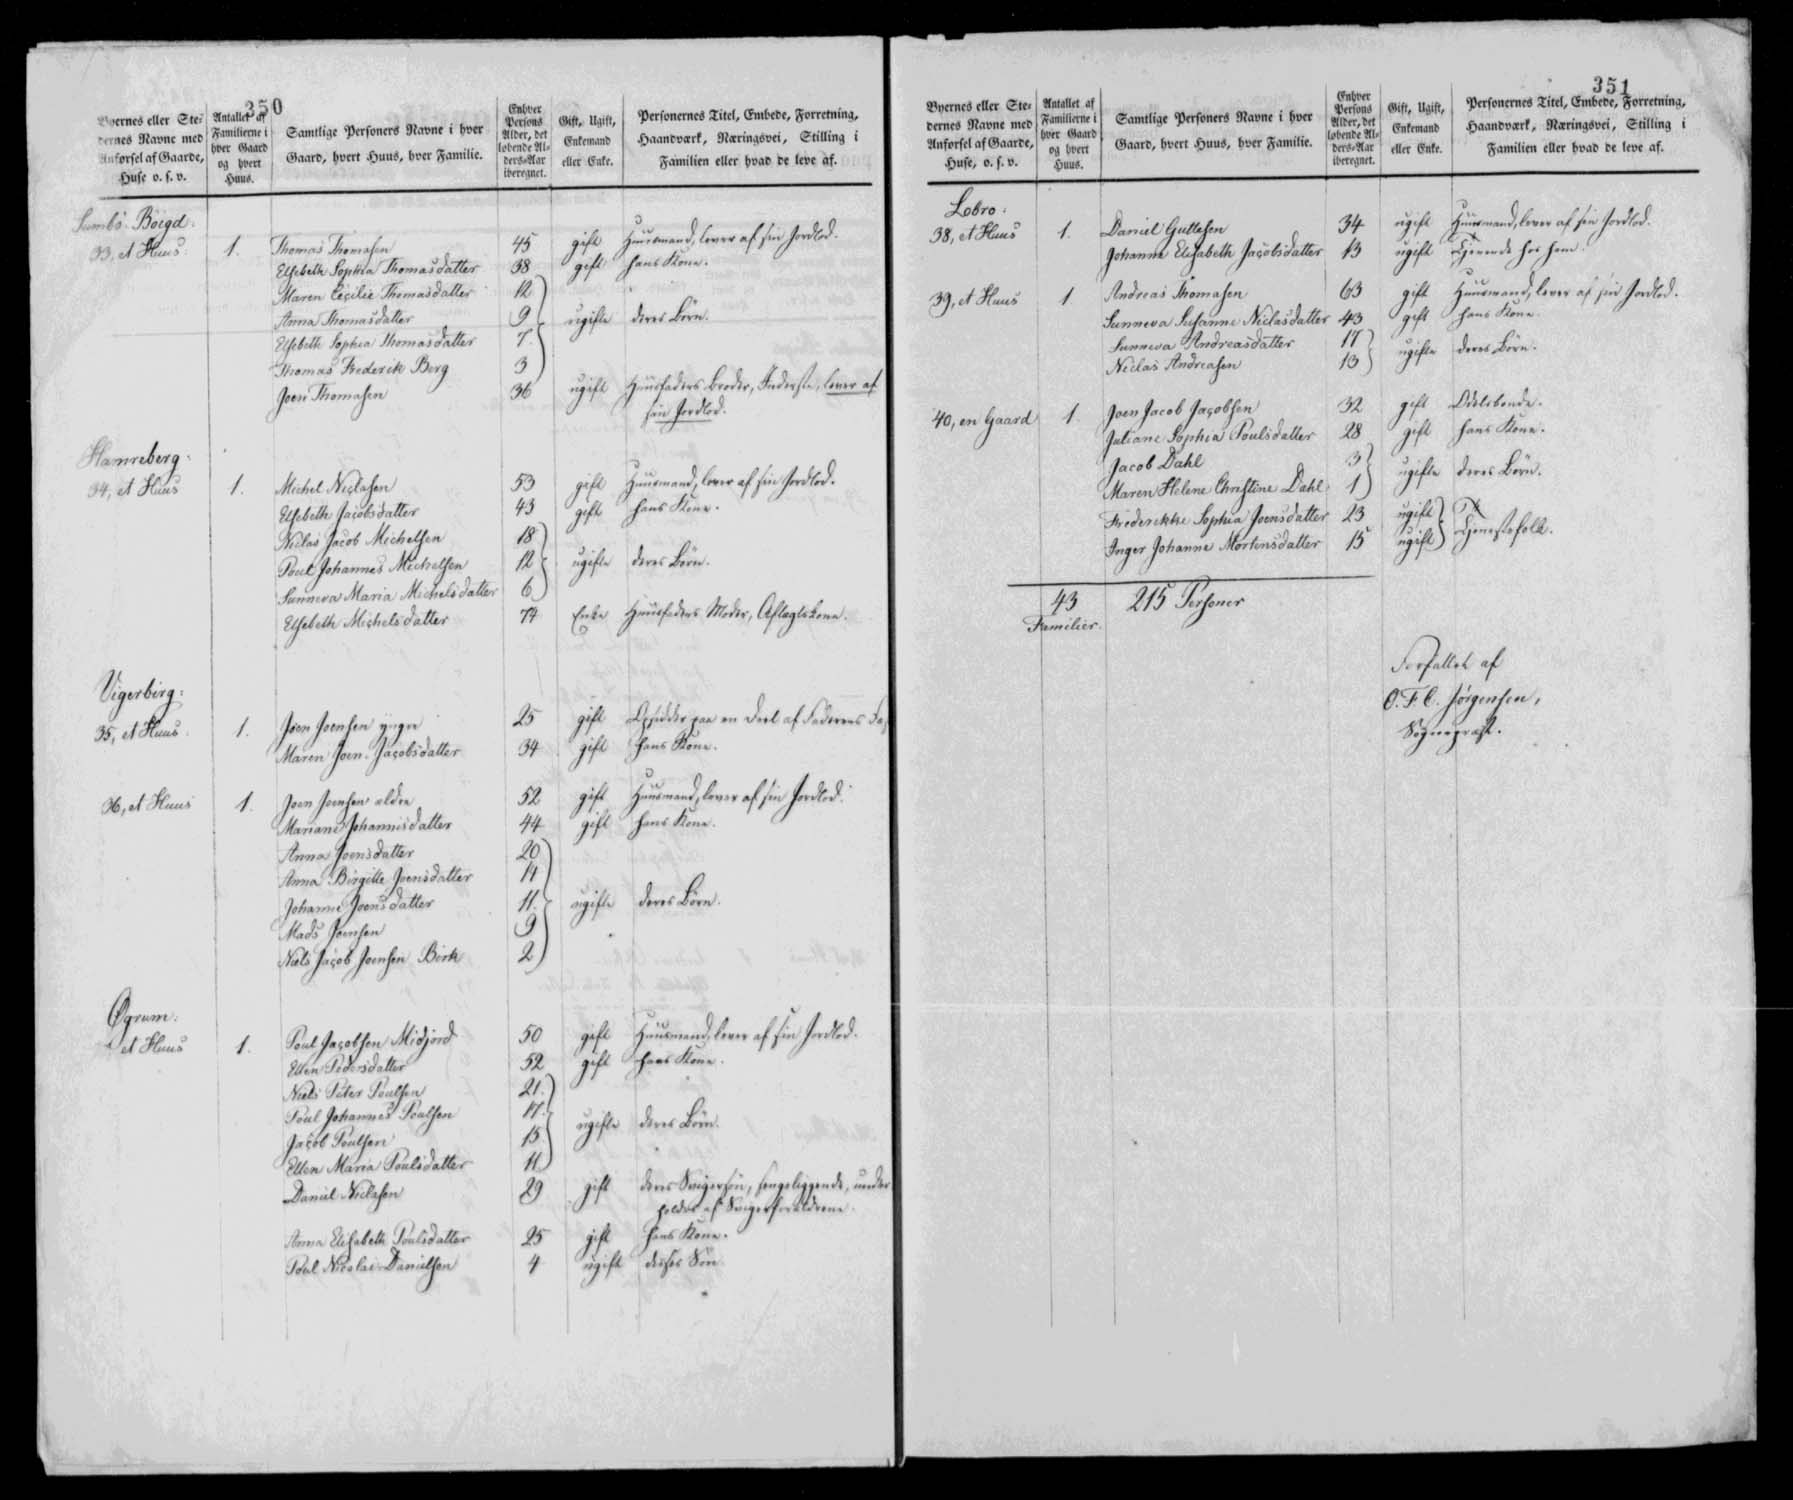 350
Byernes eller Stedernes Navne med Anførsel af Gaarde, Huse o. s. v. | Antallet af Familierne i hver Gaard og hvert Huus. | Samtlige Personers Navne i hver Gaard, hvert Huus, hver Familie. | Enhver Persons Alder, det løbende Alders-Aar iberegnet. | Gift, Ugift, Enkemand eller Enke. | Personernes Titel, Embede, Forretning, Haandværk, Næringsvei, Stilling i Familien eller hvad de leve af.
Sumbö Böigd:
33, et Huus: 1. Thomas Thomasen 45 gift Huusmand, lever af sin Jordlod.
Elsebeth Sophia Thomasdatter 38 gift hans Kone.
Maren Cecilie Thomasdatter 12
Anna Thomasdatter 9 ugifte deres Börn.
Elsebeth Sophia Thomasdatter 7
Thomas Frederik Berg 3
Joen Thomasen 36 ugift Huusfaders Broder, Inderste, lever af
sin Jordlod.
Hamreberg:
34, et Huus 1. Michel Niclasen 53 gift Huusmand, lever af sin Jordlod.
Elsebeth Jacobsdatter 43 gift hans Kone.
Niclas Jacob Michelsen 18
Poul Johannes Michelsen 12 ugifte deres Börn.
Sunneva Maria Michelsdatter 6
Elsebeth Michelsdatter 74 Enke Huusfaders Moder, Aftægtskone.
Vigerbirg:
35, et Huus. 1. Joen Joensen yngre 25 gift Opsidder paa en Deel af Faderens
Maren Joen. Jacobsdatter 34 gift hans Kone.
36, et Huus 1. Joen Joensen ældre 52 gift Huusmand, lever af sin Jordlod.
Mariane Johannisdatter 44 gift hans Kone.
Anna Joensdatter 20
Anna Birgitte Joensdatter 14
Johanne Joensdatter 11 ugifte deres Börn.
Mads Joensen 9
Niels Jacob Joensen Birk 2
Øgrum:
et Huus 1. Poul Jacobsen Midjord 50 gift Huusmand, lever af sin Jordlod.
Ellen Pedersdatter 52 gift hans Kone.
Niels Peter Poulsen 21
Poul Johannes Poulsen 17
Jacob Poulsen 15 ugifte deres Börn.
Ellen Maria Poulsdatter 11
Daniel Niclasen 29 gift deres Svigersön, sengeliggende, under
holdes af Svigerforældrene.
Anna Elisabeth Poulsdatter 25 gift hans Kone.
Poul Nicolai Danielsen 4 ugift disses Sön.
351
Byernes eller Stedernes Navne med Anførsel af Gaarde, Huse, o. s. v. | Antallet af Familierne i hver Gaard og hvert Huus. | Samtlige Personers Navne i hver Gaard, hvert Huus, hver Familie. | Enhver Persons Alder, det løbende Alders-Aar iberegnet. | Gift, Ugift, Enkemand eller Enke. | Personernes Titel, Embede, Forretning, Haandværk, Næringsvei, Stilling i Familien eller hvad de leve af.
Lobro:
38, et Huus 1. Daniel Guttesen 34 ugift Huusmand, lever af sin Jordlod.
Johanne Elisabeth Jacobsdatter 13 ugift Tjenende hos ham.
39, et Huus 1. Andreas Thomasen 63 gift Huusmand, lever af sin Jordlod.
Sunneva Susanne Niclasdatter 43 gift hans Kone.
Sunneva Andreasdatter 17
Niclas Andreasen 13 ugifte deres Börn.
40, en Gaard 1. Joen Jacob Jacobsen 32 gift Odelsbonde.
Juliane Sophia Poulsdatter 28 gift hans Kone.
Jacob Dahl 3
Maren Helene Christine Dahl 1 ugifte deres Börn.
Frederikke Sophia Joensdatter 23 ugift
Inger Johanne Mortensdatter 15 ugift Tjenestefolk.
43 215 Personer
Familier.
Forfattet af
O. F. C. Jörgensen,
Sognepræst.